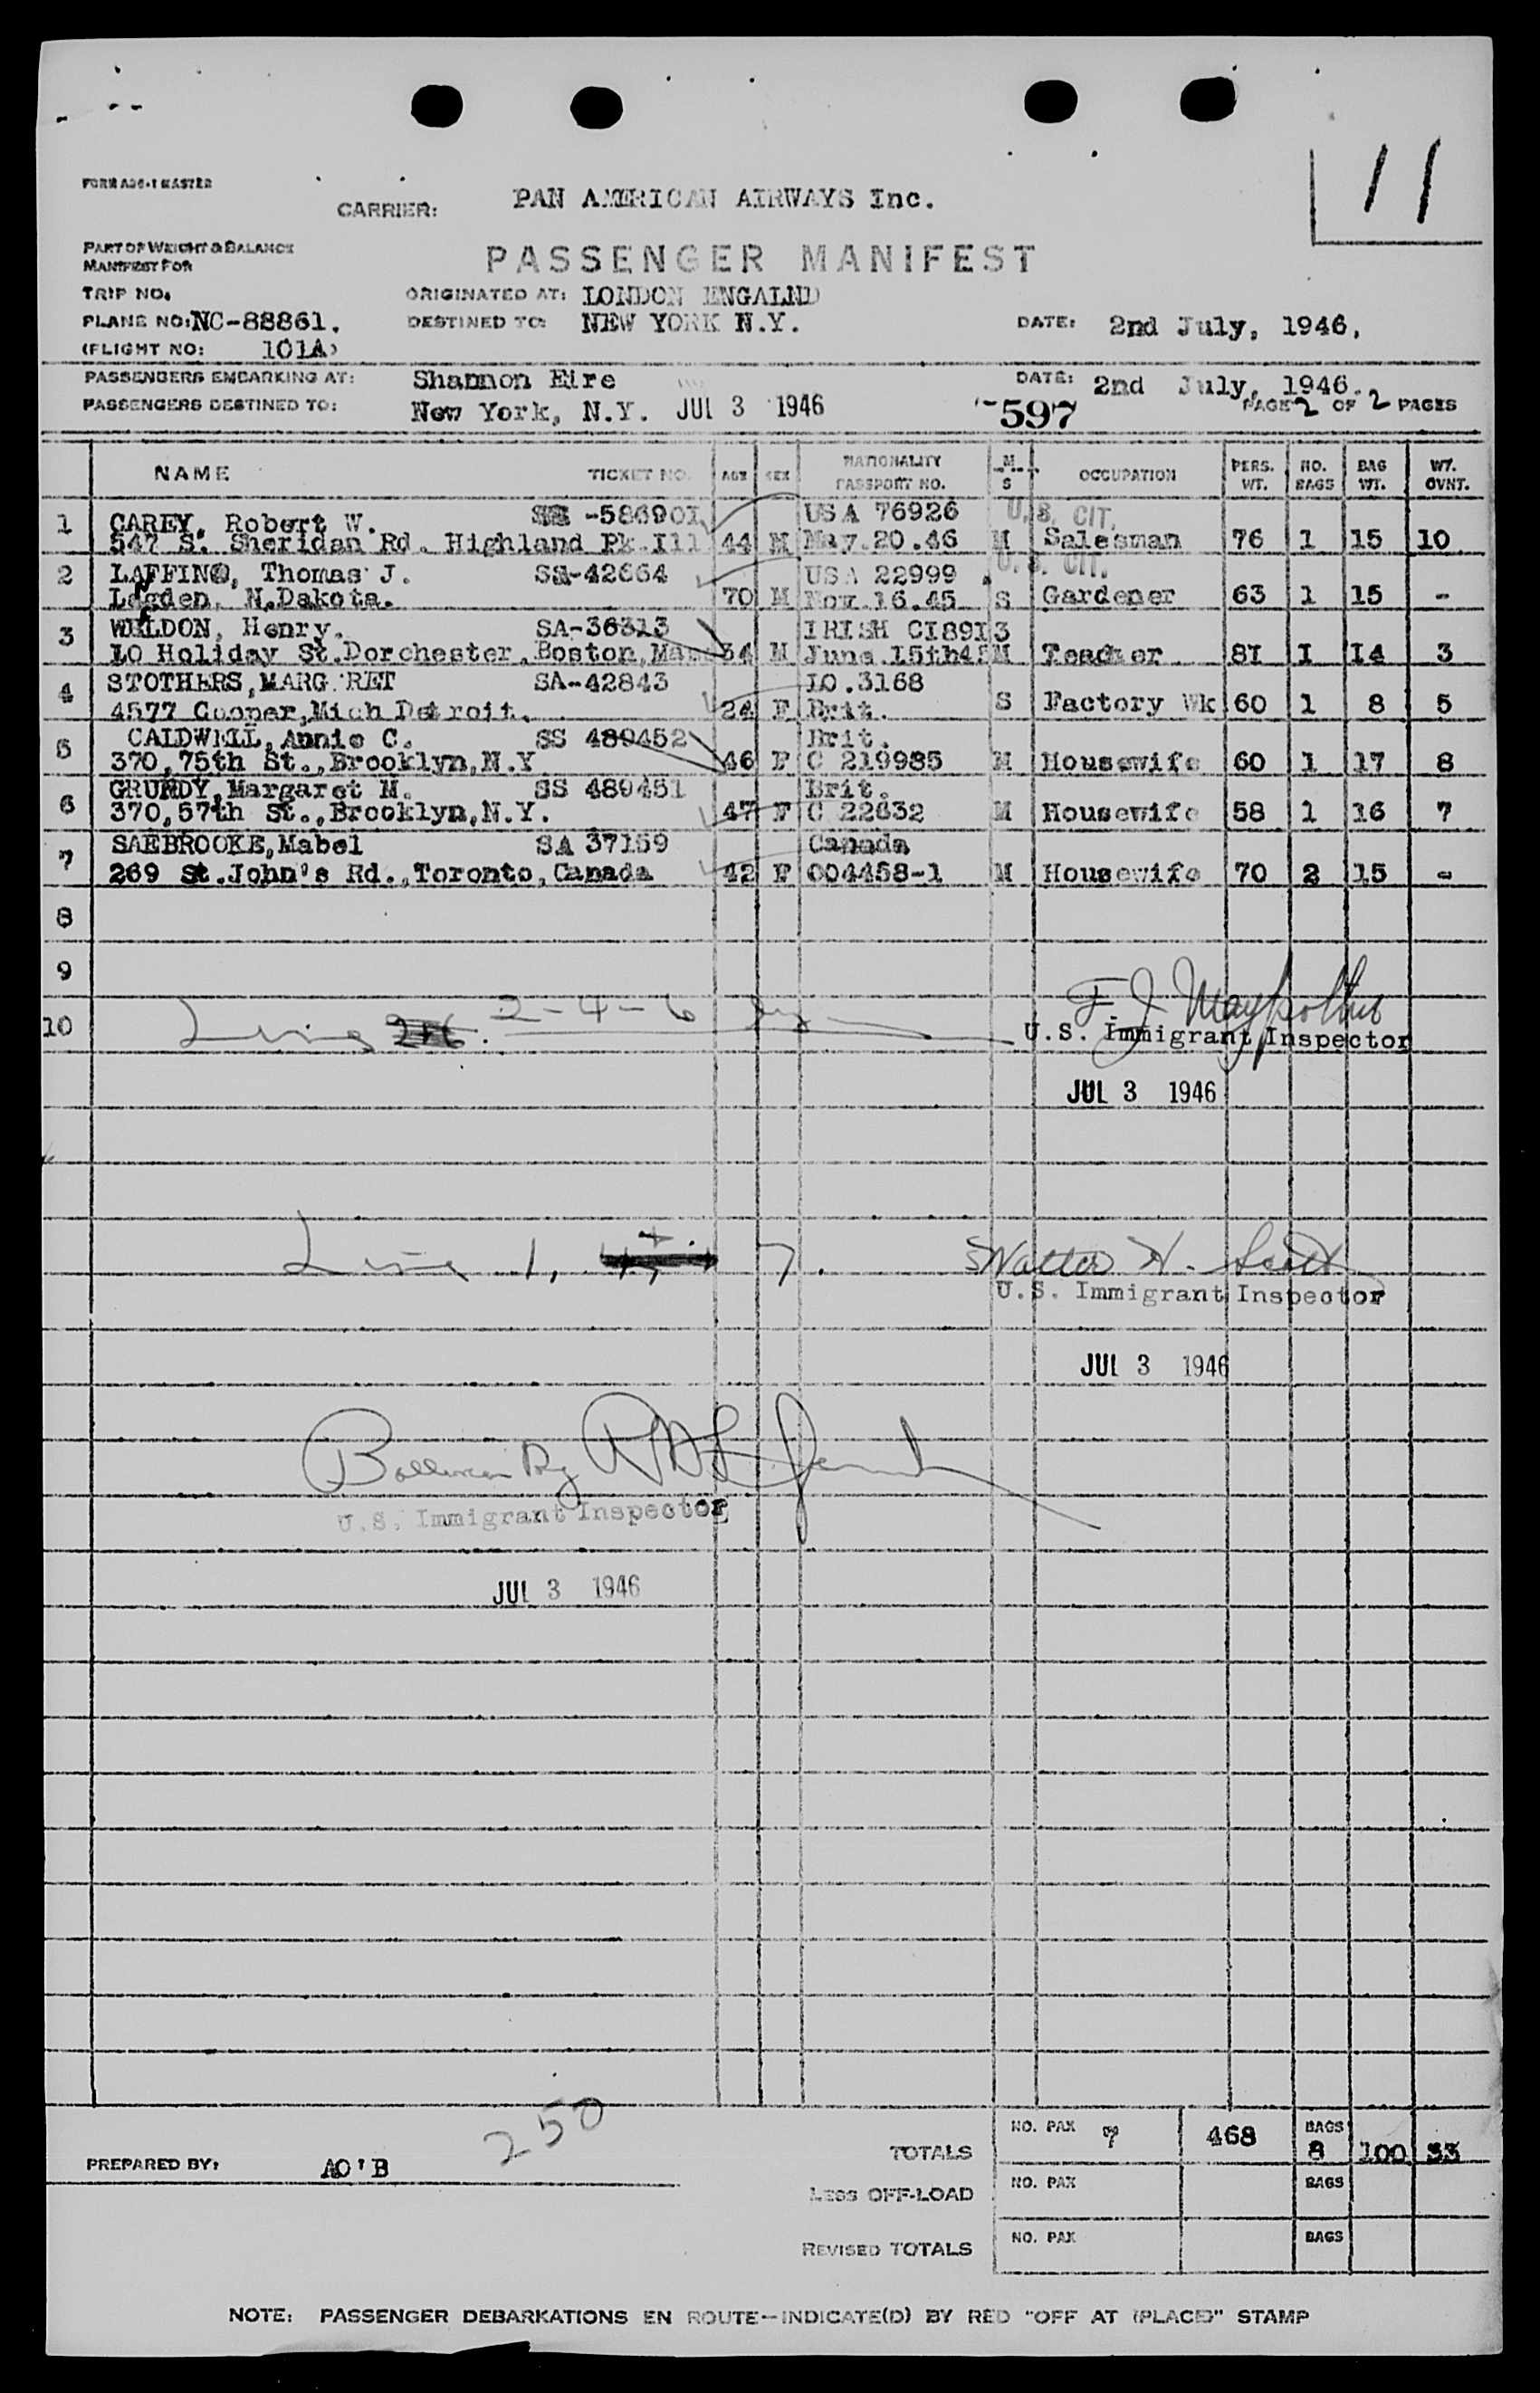 11
FORM A26-1 MASTER
CARRIER: PAN AMERICAN AIRWAYS Inc.
PART OF WEIGHT & BALANCE
MANIFEST FOR
PASSENGER MANIFEST
TRIP NO. ORIGINATED AT: LONDON ENGALND
PLANE NO: NC-88861. DESTINED TO: NEW YORK N.Y. DATE: 2nd July, 1946,
(FLIGHT NO: 101A)
PASSENGERS EMBARKING AT: Shannon Eire DATE: 2nd July, 1946.
PASSENGERS DESTINED TO: New York, N.Y. JUL 3 1946 597 PAGE 2 OF 2 PAGES
NAME TICKET NO. AGE SEX NATIONALITY PASSPORT NO. M S OCCUPATION PERS. WT. NO. BAGS BAG WT. WT. OVNT.
1 CAREY, Robert W. -586901 USA 76926 U.S. CIT.
547 S. Sheridan Rd. Highland Pk. Ill 44 M May.20.46 M Salesman 76 1 15 10
2 LAFFIN, Thomas J. SA-42664 USA 22999 U.S. CIT.
N.Dakota. 70 M Nov.16.45 S Gardener 63 1 15 -
3 WELDON, Henry. SA-36313 IRISH CI8913
10 Holiday St. Dorchester, Boston, Mas 34 M June.15th45 M Teacher 81 1 14 3
4 STOTHERS, MARG RET SA-42843 LO.3168
4577 Cooper, Mich Detroit. 24 F Brit. S Factory Wk 60 1 8 5
5 CALDWELL, Annie C. SS 489452 Brit.
370, 75th St., Brooklyn, N.Y 46 F C 219985 M Housewife 60 1 17 8
6 GRUNDY, Margaret M. SS 489451 Brit.
370, 57th St., Brooklyn, N.Y. 47 F C 22632 M Housewife 58 1 16 7
7 SAEBROOKE, Mabel SA 37159 Canada
269 St. John's Rd., Toronto, Canada 42 F 004458-1 M Housewife 70 2 15 -
8
9
10 Lines 2-4-6
U.S. Immigrant Inspector
JUL 3 1946
Line 1, 7. Walter H. Scott
U.S. Immigrant Inspector
JUL 3 1946
U.S. Immigrant Inspector
JUL 3 1946
250
PREPARED BY: AO'B
TOTALS NO. PAX 7 468 BAGS 8 100 33
LESS OFF-LOAD NO. PAX BAGS
REVISED TOTALS NO. PAX BAGS
NOTE: PASSENGER DEBARKATIONS EN ROUTE—INDICATE(D) BY RED "OFF AT (PLACE)" STAMP